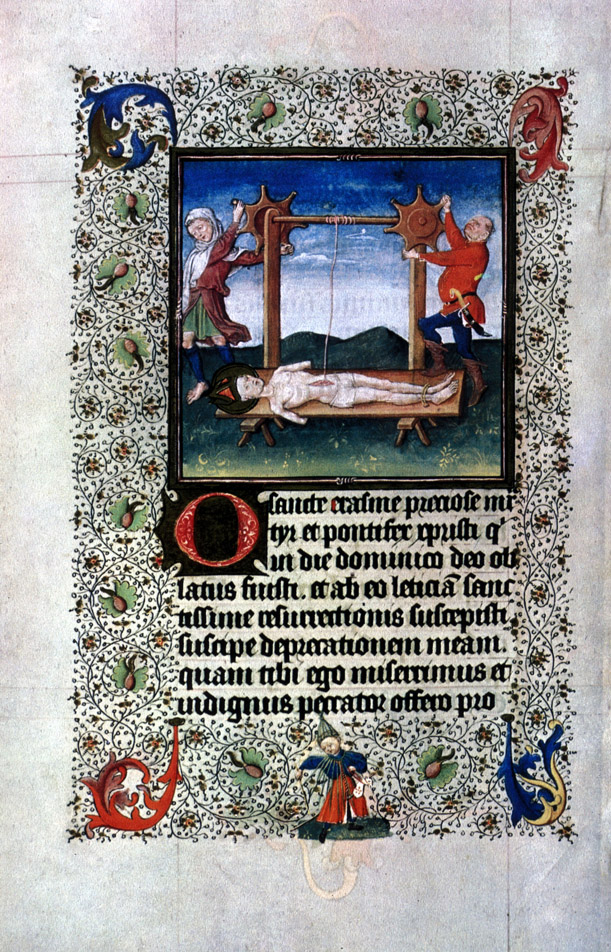 O sancte erasme preciose mr
tyr et pontifex xpristi q'
in die dominico deo ob
latus fuisti. et ab eo leticiā sanc
tissime resurrectionis suscepisti,
suscipe deprecationem meam.
quam tibi ego miserrimus et
indignus peccator offero pro